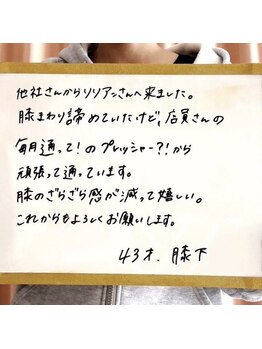 他社さんからリリアンさんへ来ました。
膝まわり諦めていたけど、店員さんの
毎月通って!のプレッシャー?!から
頑張って通っています。
膝のざらざら感が減って嬉しい。
これからもよろしくお願いします。
43才、膝下